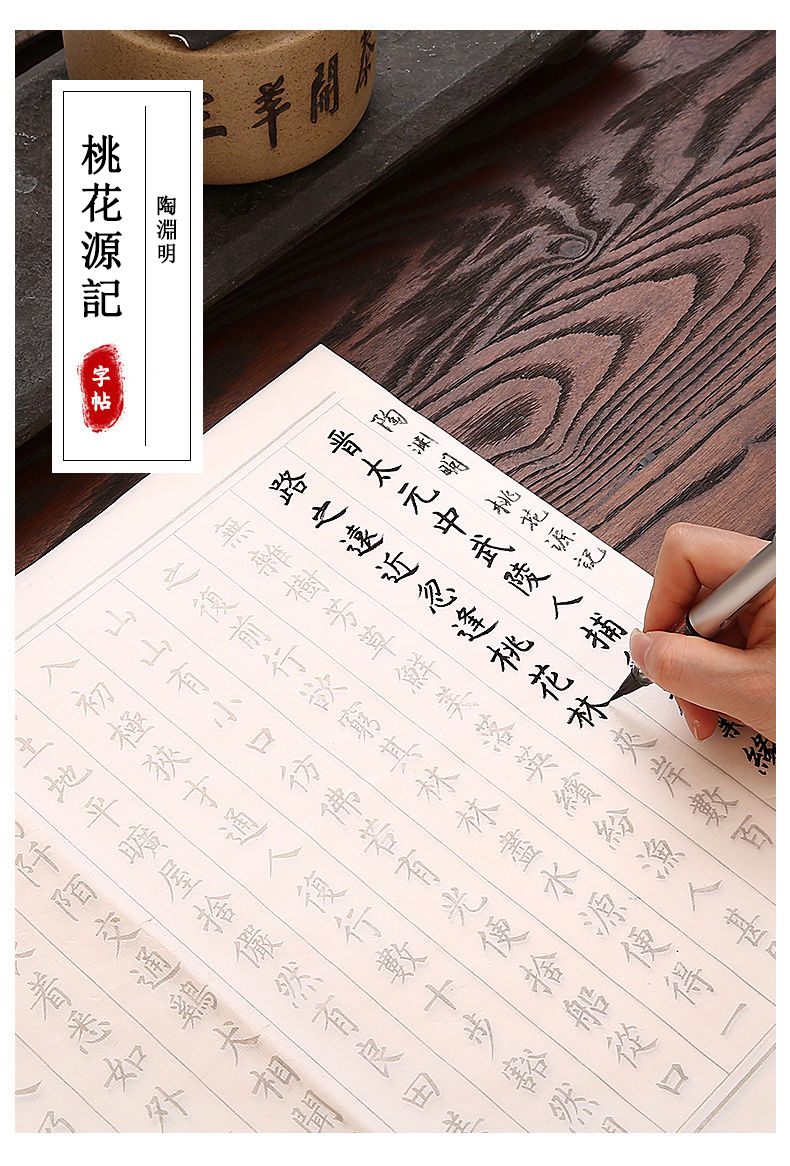 桃花源記
陶淵明
字帖
三羊開
陶淵明 桃花源記
晉太元中武陵人捕
緣
路之遠近忽逢桃花林夾岸數百
無雜樹芳草鮮美落英繽紛漁人甚
之復前行欲窮其林林盡水源便得一
山山有小口彷彿若有光便捨船從口
入初極狹才通人復行數十步豁然
土地平曠屋捨儼然有良田
阡陌交通鷄犬相聞
著悉如外
乃